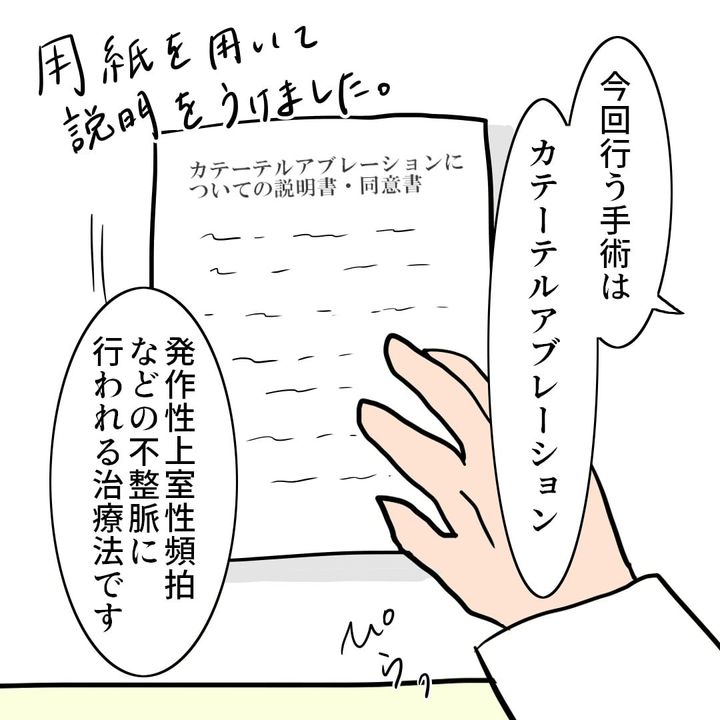 用紙を用いて
説明をうけました。
今回行う手術は
カテーテルアブレーション
カテーテルアブレーションに
ついての説明書・同意書
発作性上室性頻拍
などの不整脈に
行われる治療法です
ぴらっ